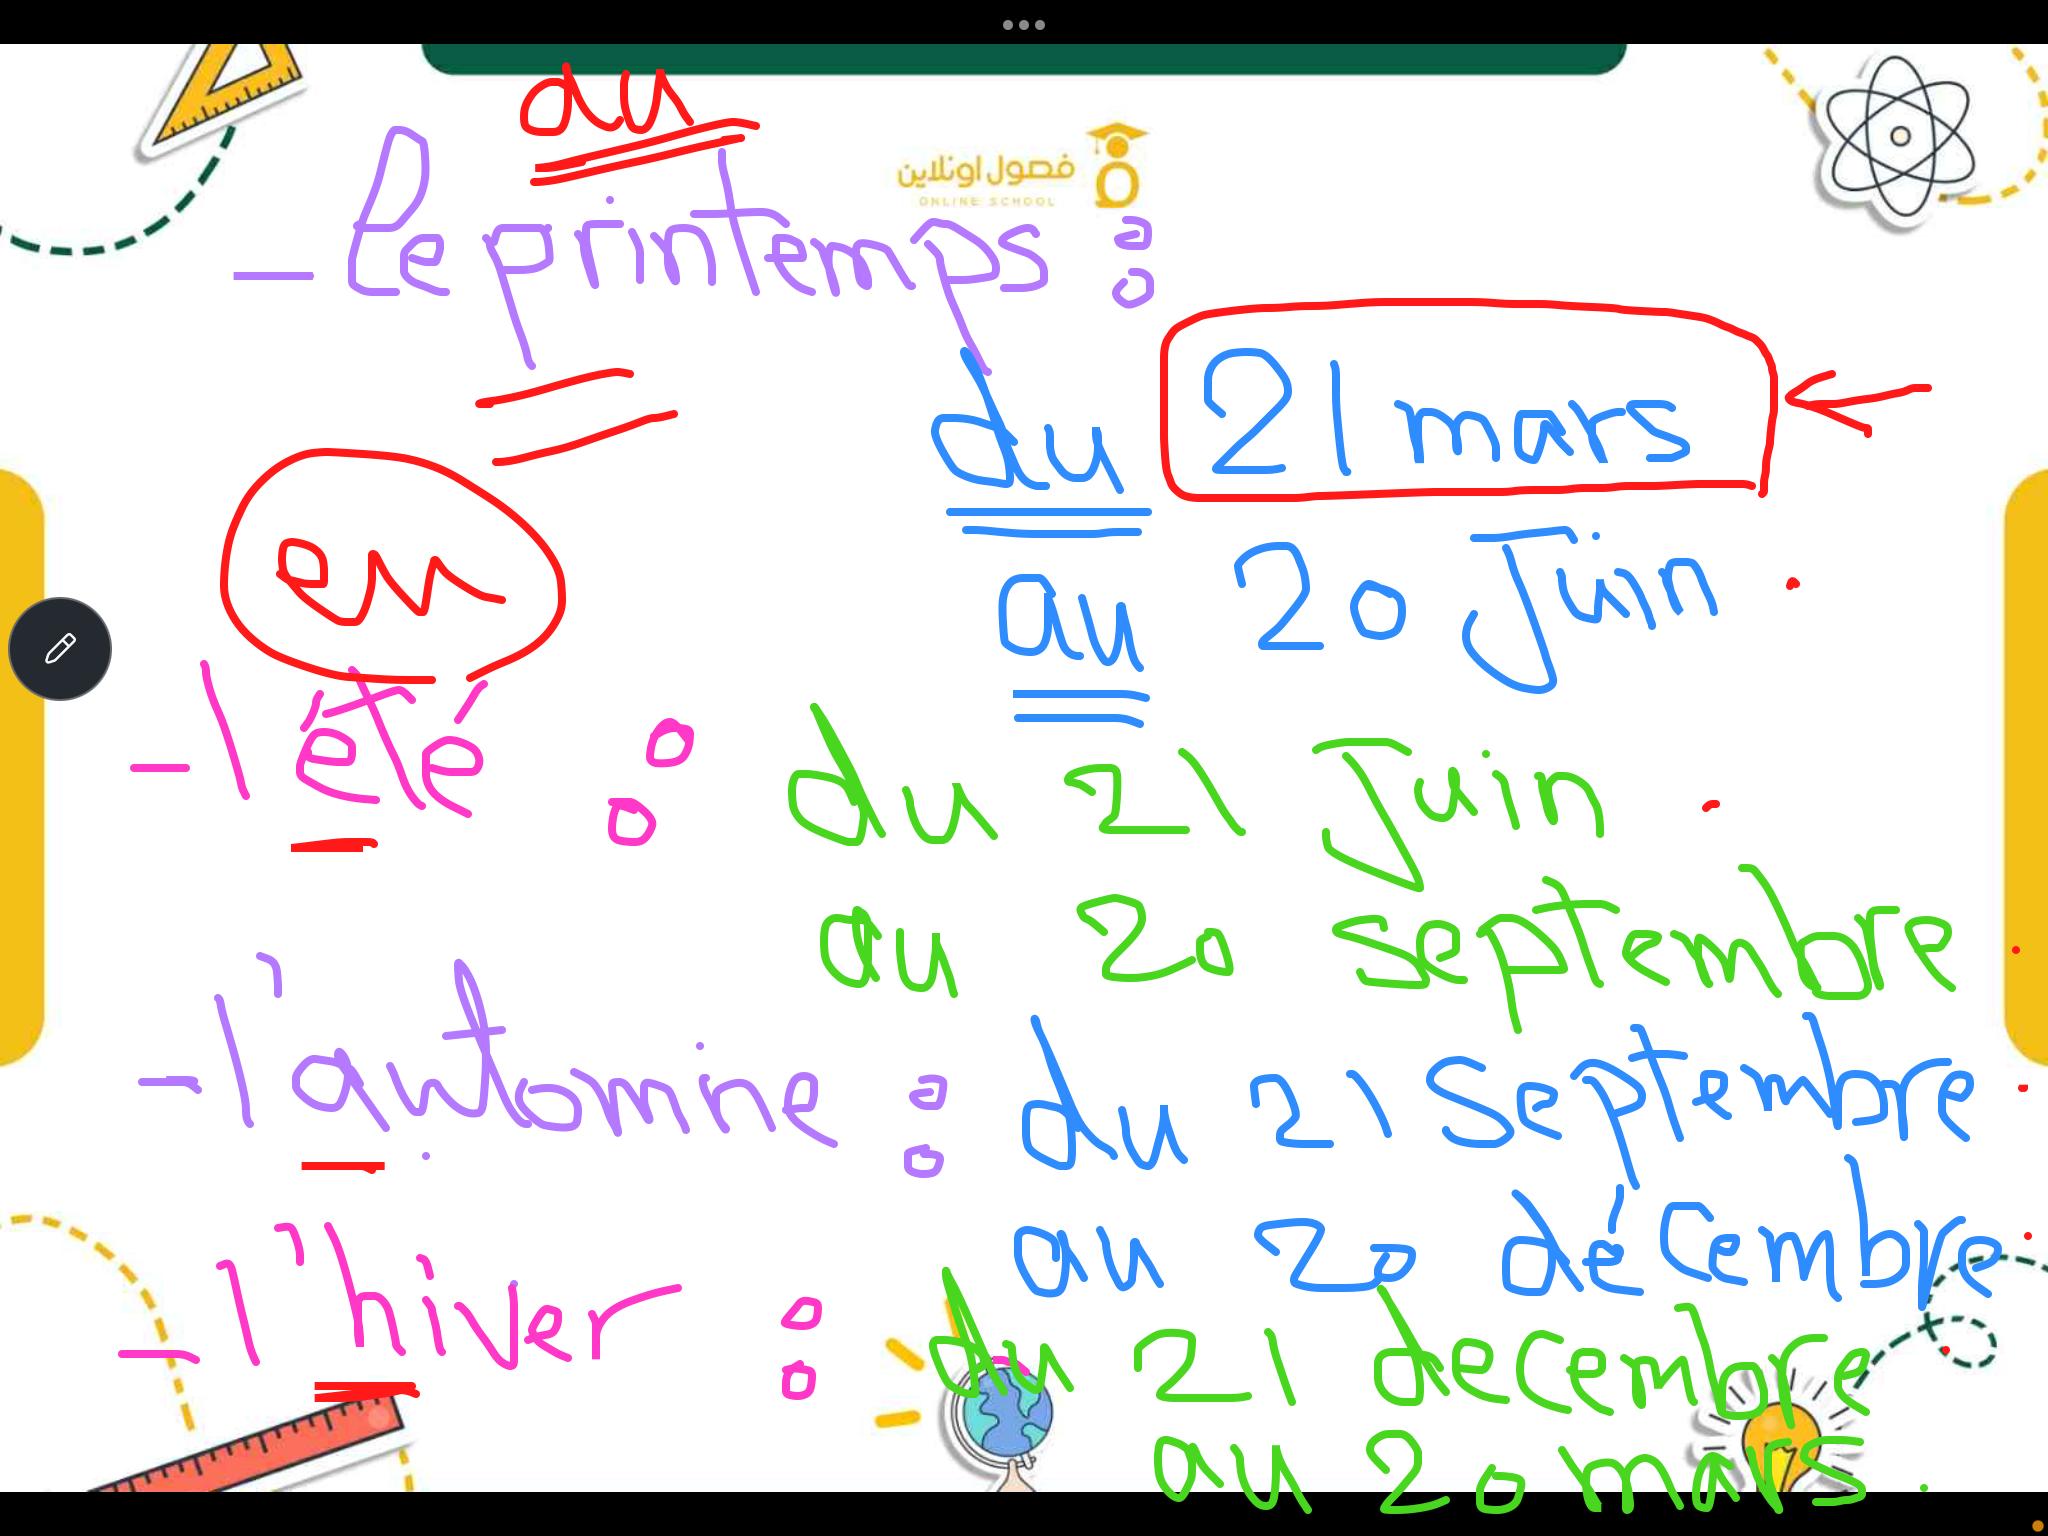 au
فصول اونلاين
ONLINE SCHOOL
- Le printemps :
du 21 mars
au 20 Juin.
en
- l'été : du 21 Juin.
au 20 septembre.
- l'automine : du 21 Septembre.
au 20 décembre.
- l'hiver : du 21 decembre.
au 20 mars.